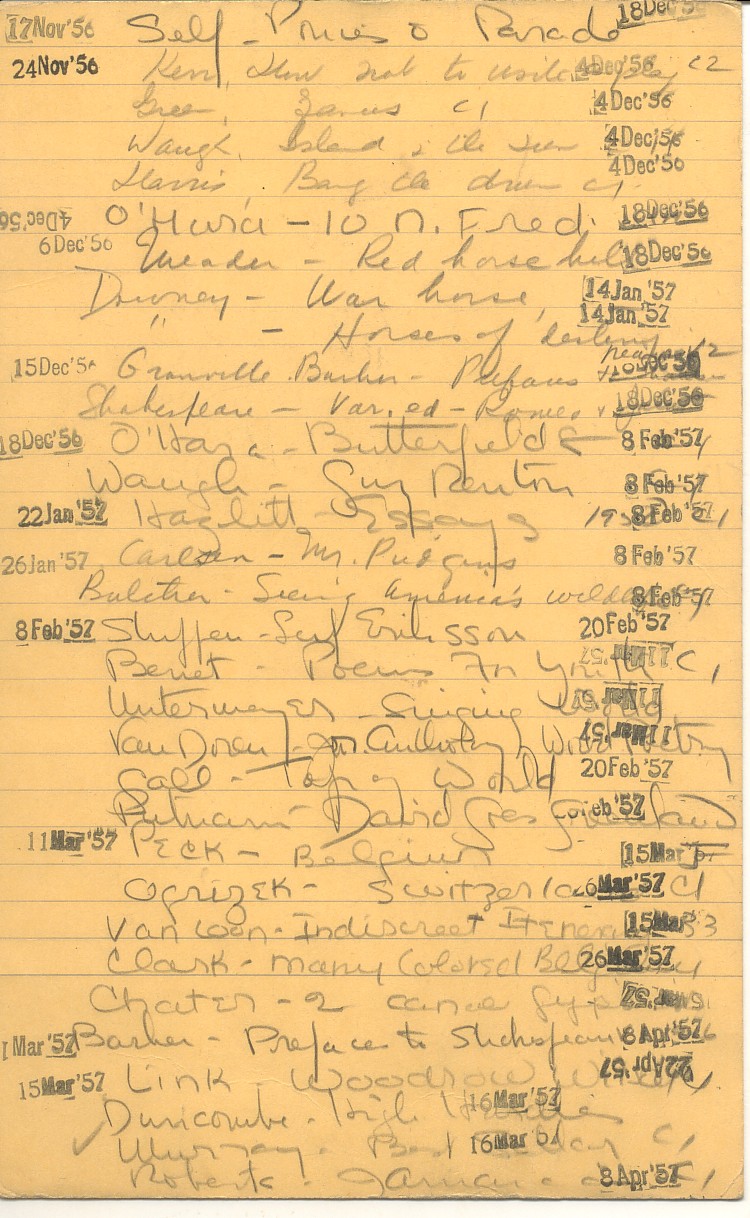 17 Nov '56 Self - Parade 18 Dec '56
24 Nov '56 Kerr, How not to write a play C2 4 Dec '56
Green, C1 4 Dec '56
Waugh, Island in the sun 4 Dec '56
Harris, Bang the drum C1 4 Dec '56
4 Dec '56 O'Hara - 10 N. Fred. 18 Dec '56
6 Dec '56 Meader - Red horse hill 18 Dec '56
Downey - War horse, 14 Jan '57
" - Horses of destiny 14 Jan '57
15 Dec '5 Granville Barker - Prefaces Dec '56
Shakespeare - Var. ed - Romeo 18 Dec '56
18 Dec '56 O'Hara - Butterfield 8 8 Feb '57
Waugh - Guy Renton 8 Feb '57
22 Jan '57 Hazlitt - Essays 8 Feb '57 C1
26 Jan '57 Carlsen - Mr. Pudgins 8 Feb '57
Butcher - Seeing America's wild 8 Feb '57
8 Feb '57 Shippen - Leif Eriksson 20 Feb '57
Benet - Poems For Youth C1 11 Mar '57
Untermeyer - Singing World 11 Mar '57
Van Doren - Jr. Anthology World Poetry 11 Mar '57
Gall - Top of World 20 Feb '57
Putnam - David Goes Greenland Feb '57
11 Mar '57 Peck - Belgium 15 Mar '57
Ogrizek - Switzerland C1 26 Mar '57
Van Loon - Indiscreet Itinerary 15 Mar '57
Clark - Many Colored Belgium 26 Mar '57
Chater - 2 canoe gypsies Mar '57
Mar '57 Barker - Prefaces to Shakespeare 8 Apr '57
15 Mar '57 Link - Woodrow Wilson 22 Apr '57
Duncombe - High 16 Mar '57
Murray - Best C1 16 Mar '57
Roberts - C1 8 Apr '57